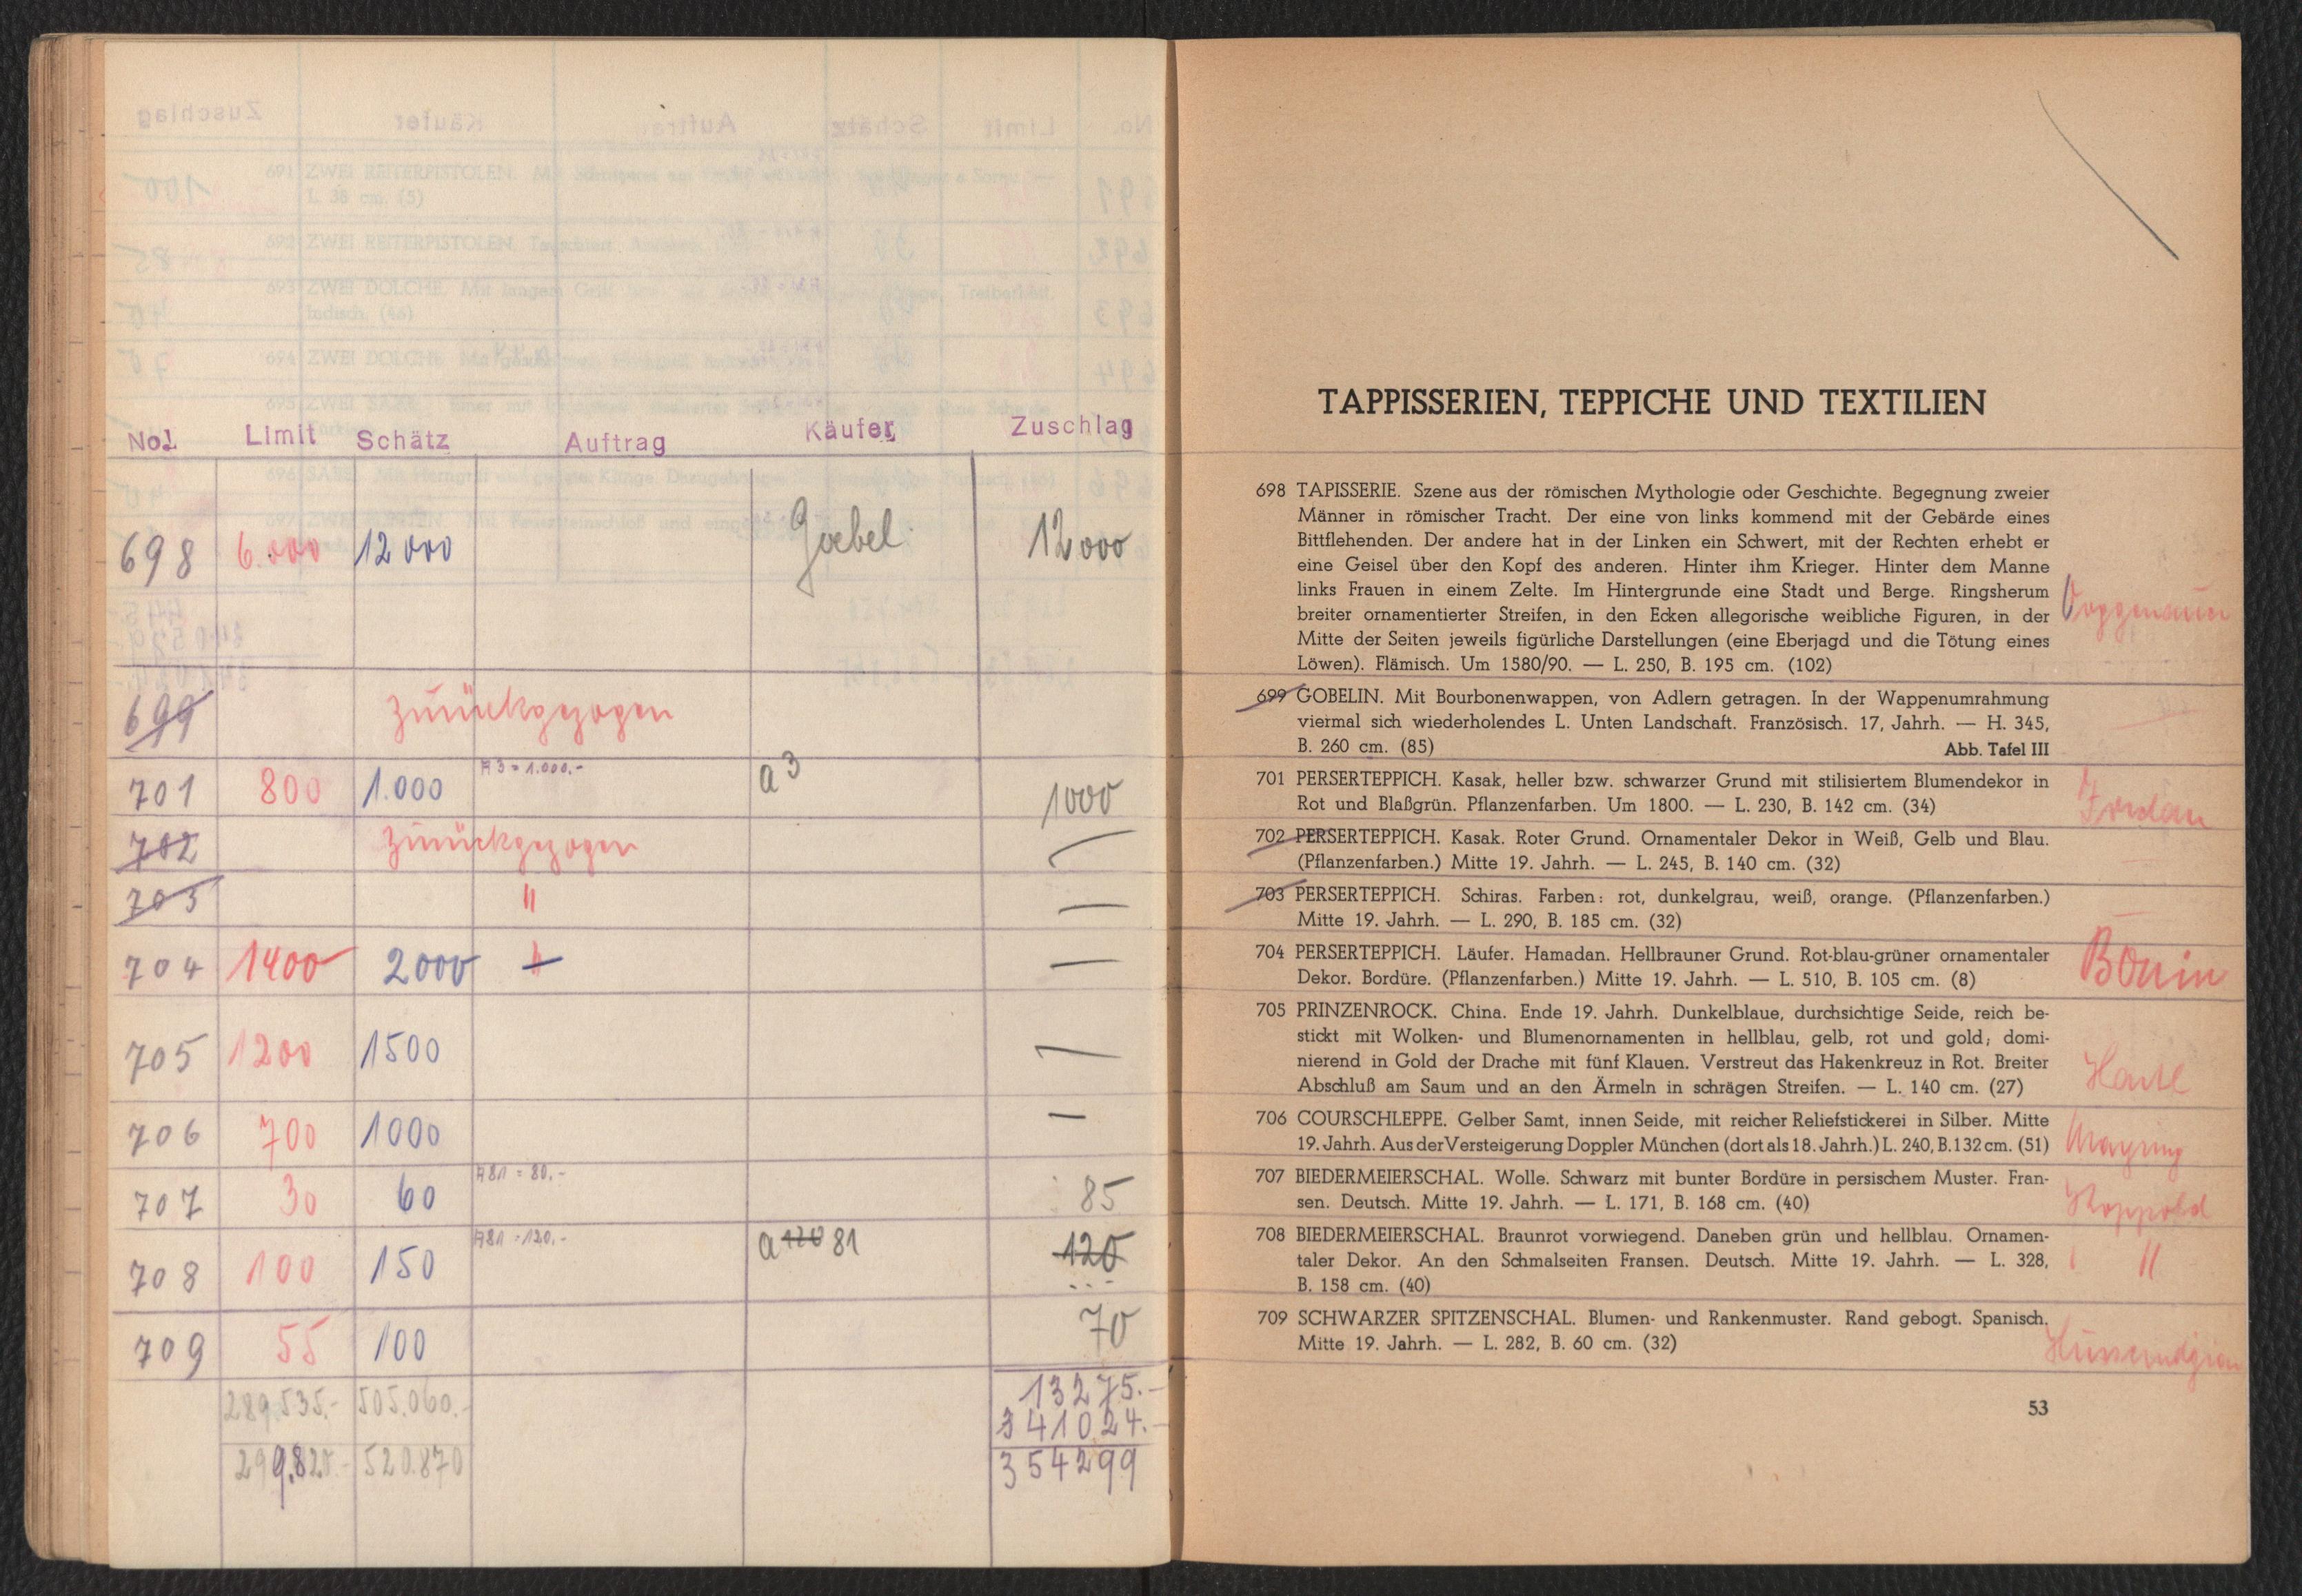 No. Limit Schätz Auftrag Käufer Zuschlag
698 6.000 12000 Goebel. 12000
699 zurückgezogen
701 800 1.000 A3 = 1.000.- a3 1000
702 zurückgezogen —
703 " —
704 1400 2000 —
705 1200 1500 —
706 700 1000 —
707 30 60 A81 = 80.- 85
708 100 150 A81 = 120.- a 120 81 120
709 55 100 70
289.535.- 505.060.- 13275.-
341024.-
299.820.- 520.870 354299
TAPPISSERIEN, TEPPICHE UND TEXTILIEN
698 TAPISSERIE. Szene aus der römischen Mythologie oder Geschichte. Begegnung zweier
Männer in römischer Tracht. Der eine von links kommend mit der Gebärde eines
Bittflehenden. Der andere hat in der Linken ein Schwert, mit der Rechten erhebt er
eine Geisel über den Kopf des anderen. Hinter ihm Krieger. Hinter dem Manne
links Frauen in einem Zelte. Im Hintergrunde eine Stadt und Berge. Ringsherum
breiter ornamentierter Streifen, in den Ecken allegorische weibliche Figuren, in der
Mitte der Seiten jeweils figürliche Darstellungen (eine Eberjagd und die Tötung eines
Löwen). Flämisch. Um 1580/90. — L. 250, B. 195 cm. (102)
699 GOBELIN. Mit Bourbonenwappen, von Adlern getragen. In der Wappenumrahmung
viermal sich wiederholendes L. Unten Landschaft. Französisch. 17, Jahrh. — H. 345,
B. 260 cm. (85) Abb. Tafel III
701 PERSERTEPPICH. Kasak, heller bzw. schwarzer Grund mit stilisiertem Blumendekor in
Rot und Blaßgrün. Pflanzenfarben. Um 1800. — L. 230, B. 142 cm. (34) Jordan
702 PERSERTEPPICH. Kasak. Roter Grund. Ornamentaler Dekor in Weiß, Gelb und Blau.
(Pflanzenfarben.) Mitte 19. Jahrh. — L. 245, B. 140 cm. (32)
703 PERSERTEPPICH. Schiras. Farben: rot, dunkelgrau, weiß, orange. (Pflanzenfarben.)
Mitte 19. Jahrh. — L. 290, B. 185 cm. (32)
704 PERSERTEPPICH. Läufer. Hamadan. Hellbrauner Grund. Rot-blau-grüner ornamentaler
Dekor. Bordüre. (Pflanzenfarben.) Mitte 19. Jahrh. — L. 510, B. 105 cm. (8)
705 PRINZENROCK. China. Ende 19. Jahrh. Dunkelblaue, durchsichtige Seide, reich be-
stickt mit Wolken- und Blumenornamenten in hellblau, gelb, rot und gold; domi-
nierend in Gold der Drache mit fünf Klauen. Verstreut das Hakenkreuz in Rot. Breiter
Abschluß am Saum und an den Ärmeln in schrägen Streifen. — L. 140 cm. (27)
706 COURSCHLEPPE. Gelber Samt, innen Seide, mit reicher Reliefstickerei in Silber. Mitte
19. Jahrh. Aus der Versteigerung Doppler München (dort als 18. Jahrh.) L. 240, B. 132 cm. (51) Mayring
707 BIEDERMEIERSCHAL. Wolle. Schwarz mit bunter Bordüre in persischem Muster. Fran-
sen. Deutsch. Mitte 19. Jahrh. — L. 171, B. 168 cm. (40) Koppold
708 BIEDERMEIERSCHAL. Braunrot vorwiegend. Daneben grün und hellblau. Ornamen-
taler Dekor. An den Schmalseiten Fransen. Deutsch. Mitte 19. Jahrh. — L. 328, "
B. 158 cm. (40)
709 SCHWARZER SPITZENSCHAL. Blumen- und Rankenmuster. Rand gebogt. Spanisch.
Mitte 19. Jahrh. — L. 282, B. 60 cm. (32)
53